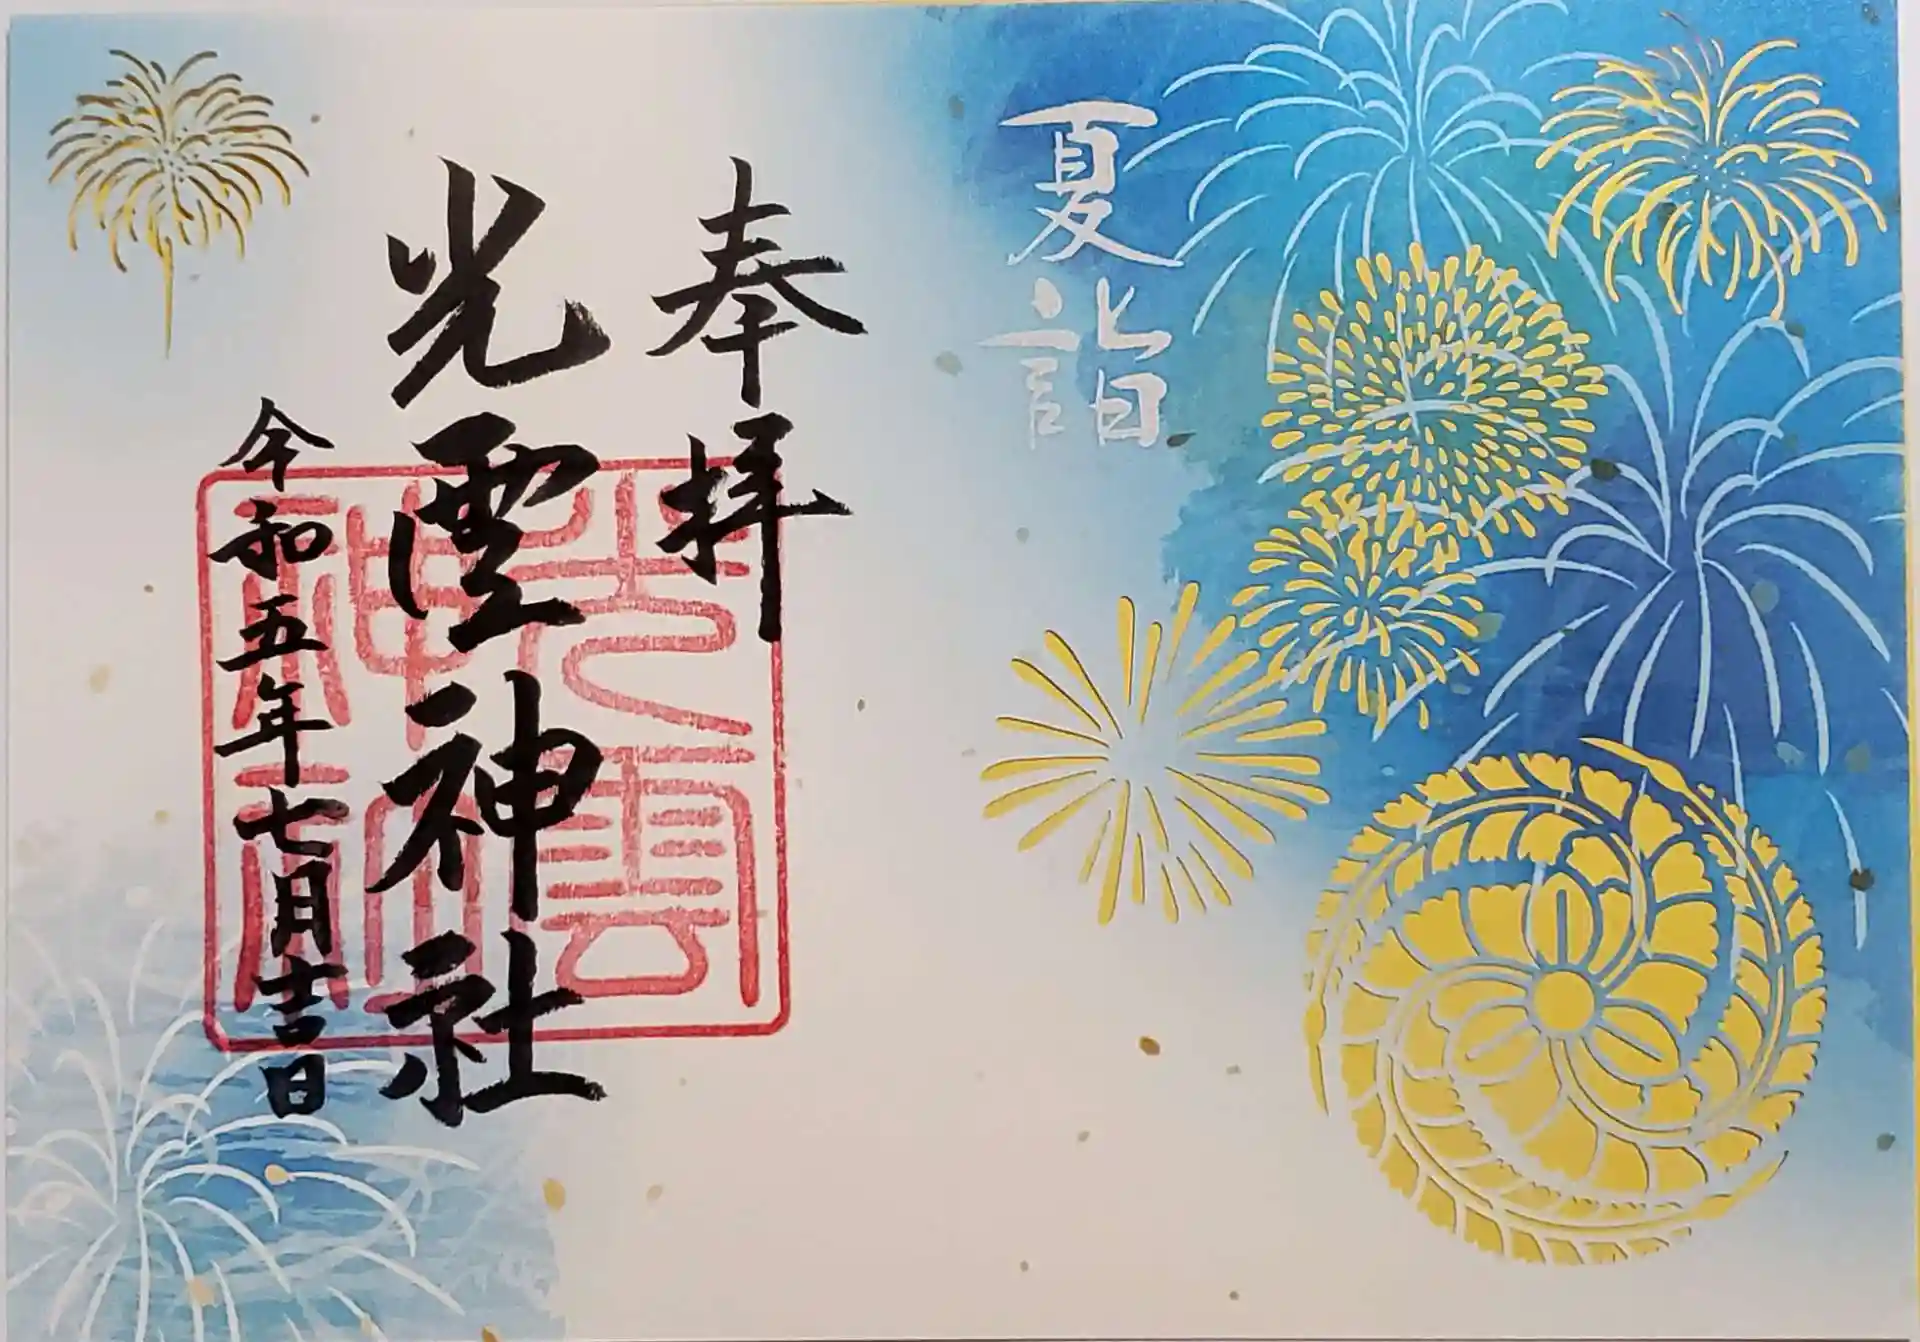 夏詣
奉拝
光雲神社
令和五年七月吉日
光雲
神社